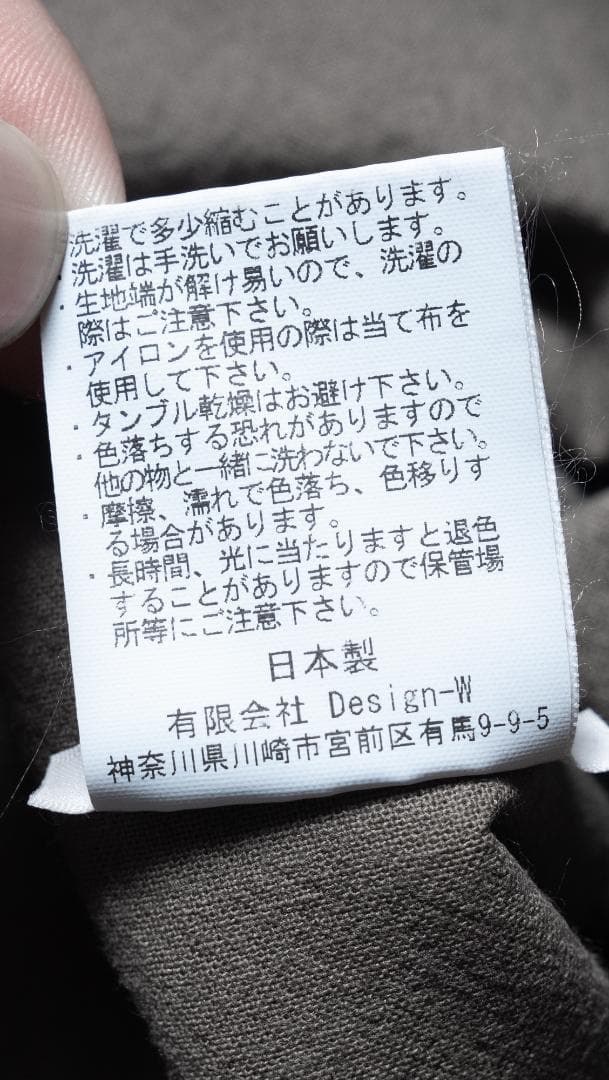 洗濯で多少縮むことがあります。
洗濯は手洗いでお願いします。
・生地端が解け易いので、洗濯の
際はご注意下さい。
・アイロンを使用の際は当て布を
使用して下さい。
・タンブル乾燥はお避け下さい。
・色落ちする恐れがありますので
他の物と一緒に洗わないで下さい。
・摩擦、濡れで色落ち、色移りす
る場合があります。
・長時間、光に当たりますと退色
することがありますので保管場
所等にご注意下さい。
日本製
有限会社 Design-W
神奈川県川崎市宮前区有馬9-9-5